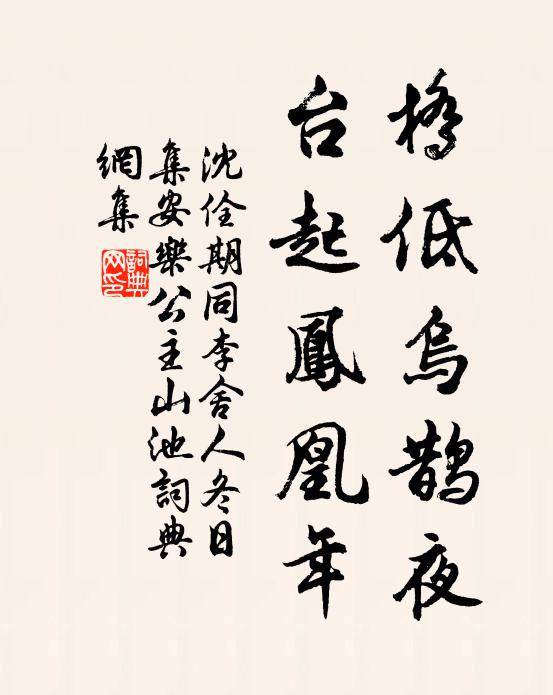 橋低烏鵲夜
台起鳳凰年
沈佺期同李舍人冬日
集安樂公主山池詞典
網集
詞典
网印